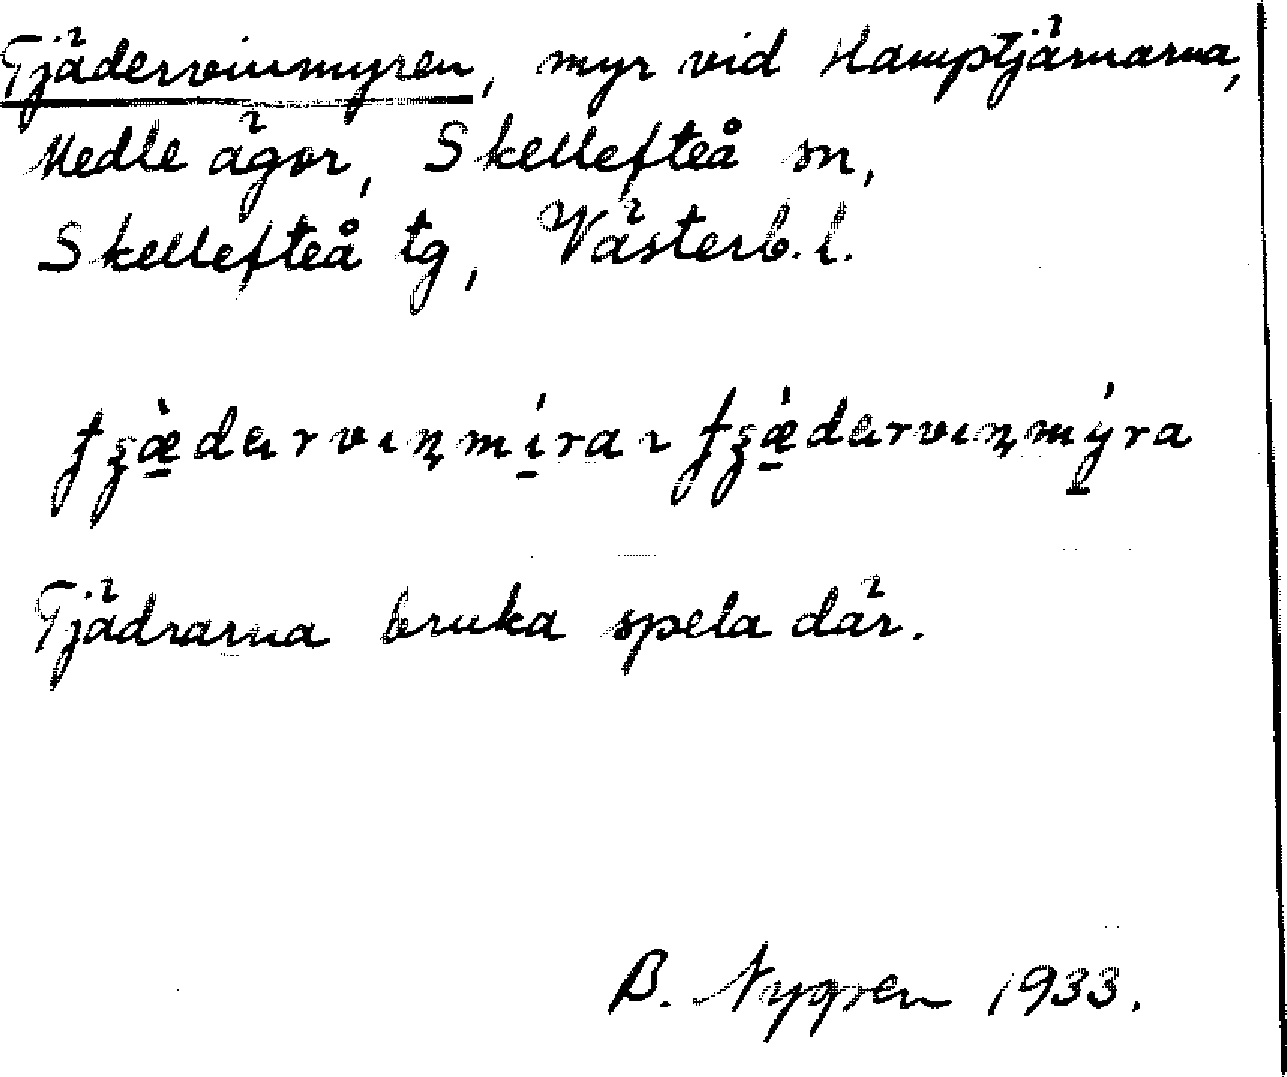 Tjädervinmyren, myr vid Hamptjärnarna,
Medle ägor, Skellefteå sn,
Skellefteå tg, Västerb. l.
Tjädrarna bruka spela där.
B. Nygren 1933.